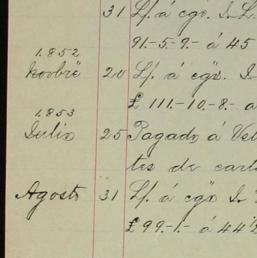 31 Lf. á cgo. I. L.
91.-5.-9.- á 45
1852
Novbrē 20 Lf. á cgo. I.
£ 111.-10.-8.- a
1853
Julio 25 Pagado á Val
tes de cart
Agosto 31 Lf. á cgo I.
£ 99.-1.- á 44